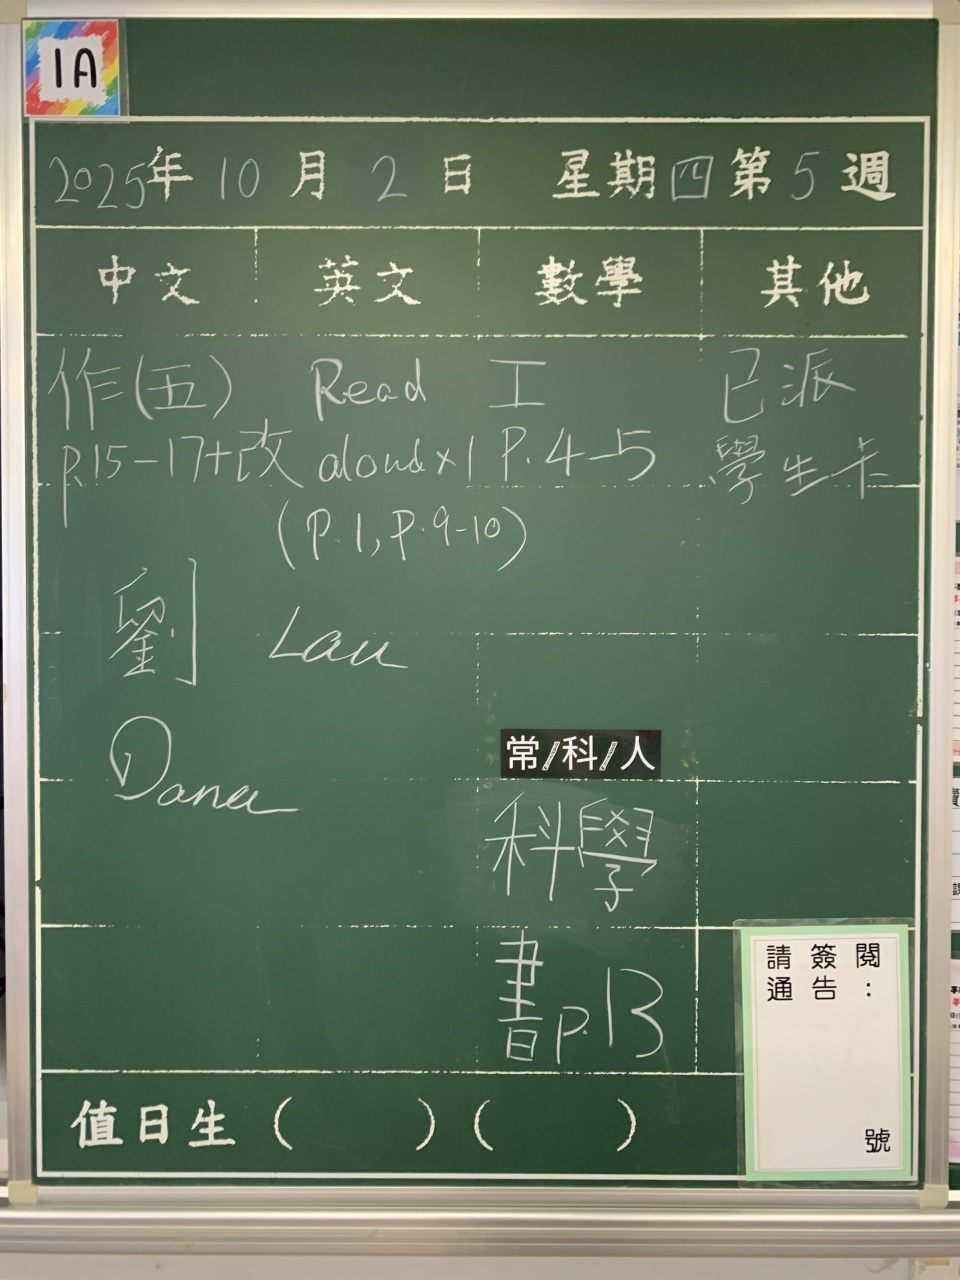 1A
2025年 10 月 2 日 星期四 第 5 週
中文 英文 數學 其他
作(五)
p.15-17+改
Read
aloud x1
(P.1, P.9-10)
工
P.4-5
已派
學生卡
劉
Lau
Dana
常/科/人
科學
書p.13
請簽閱
通告:
號
值日生 ( ) ( )